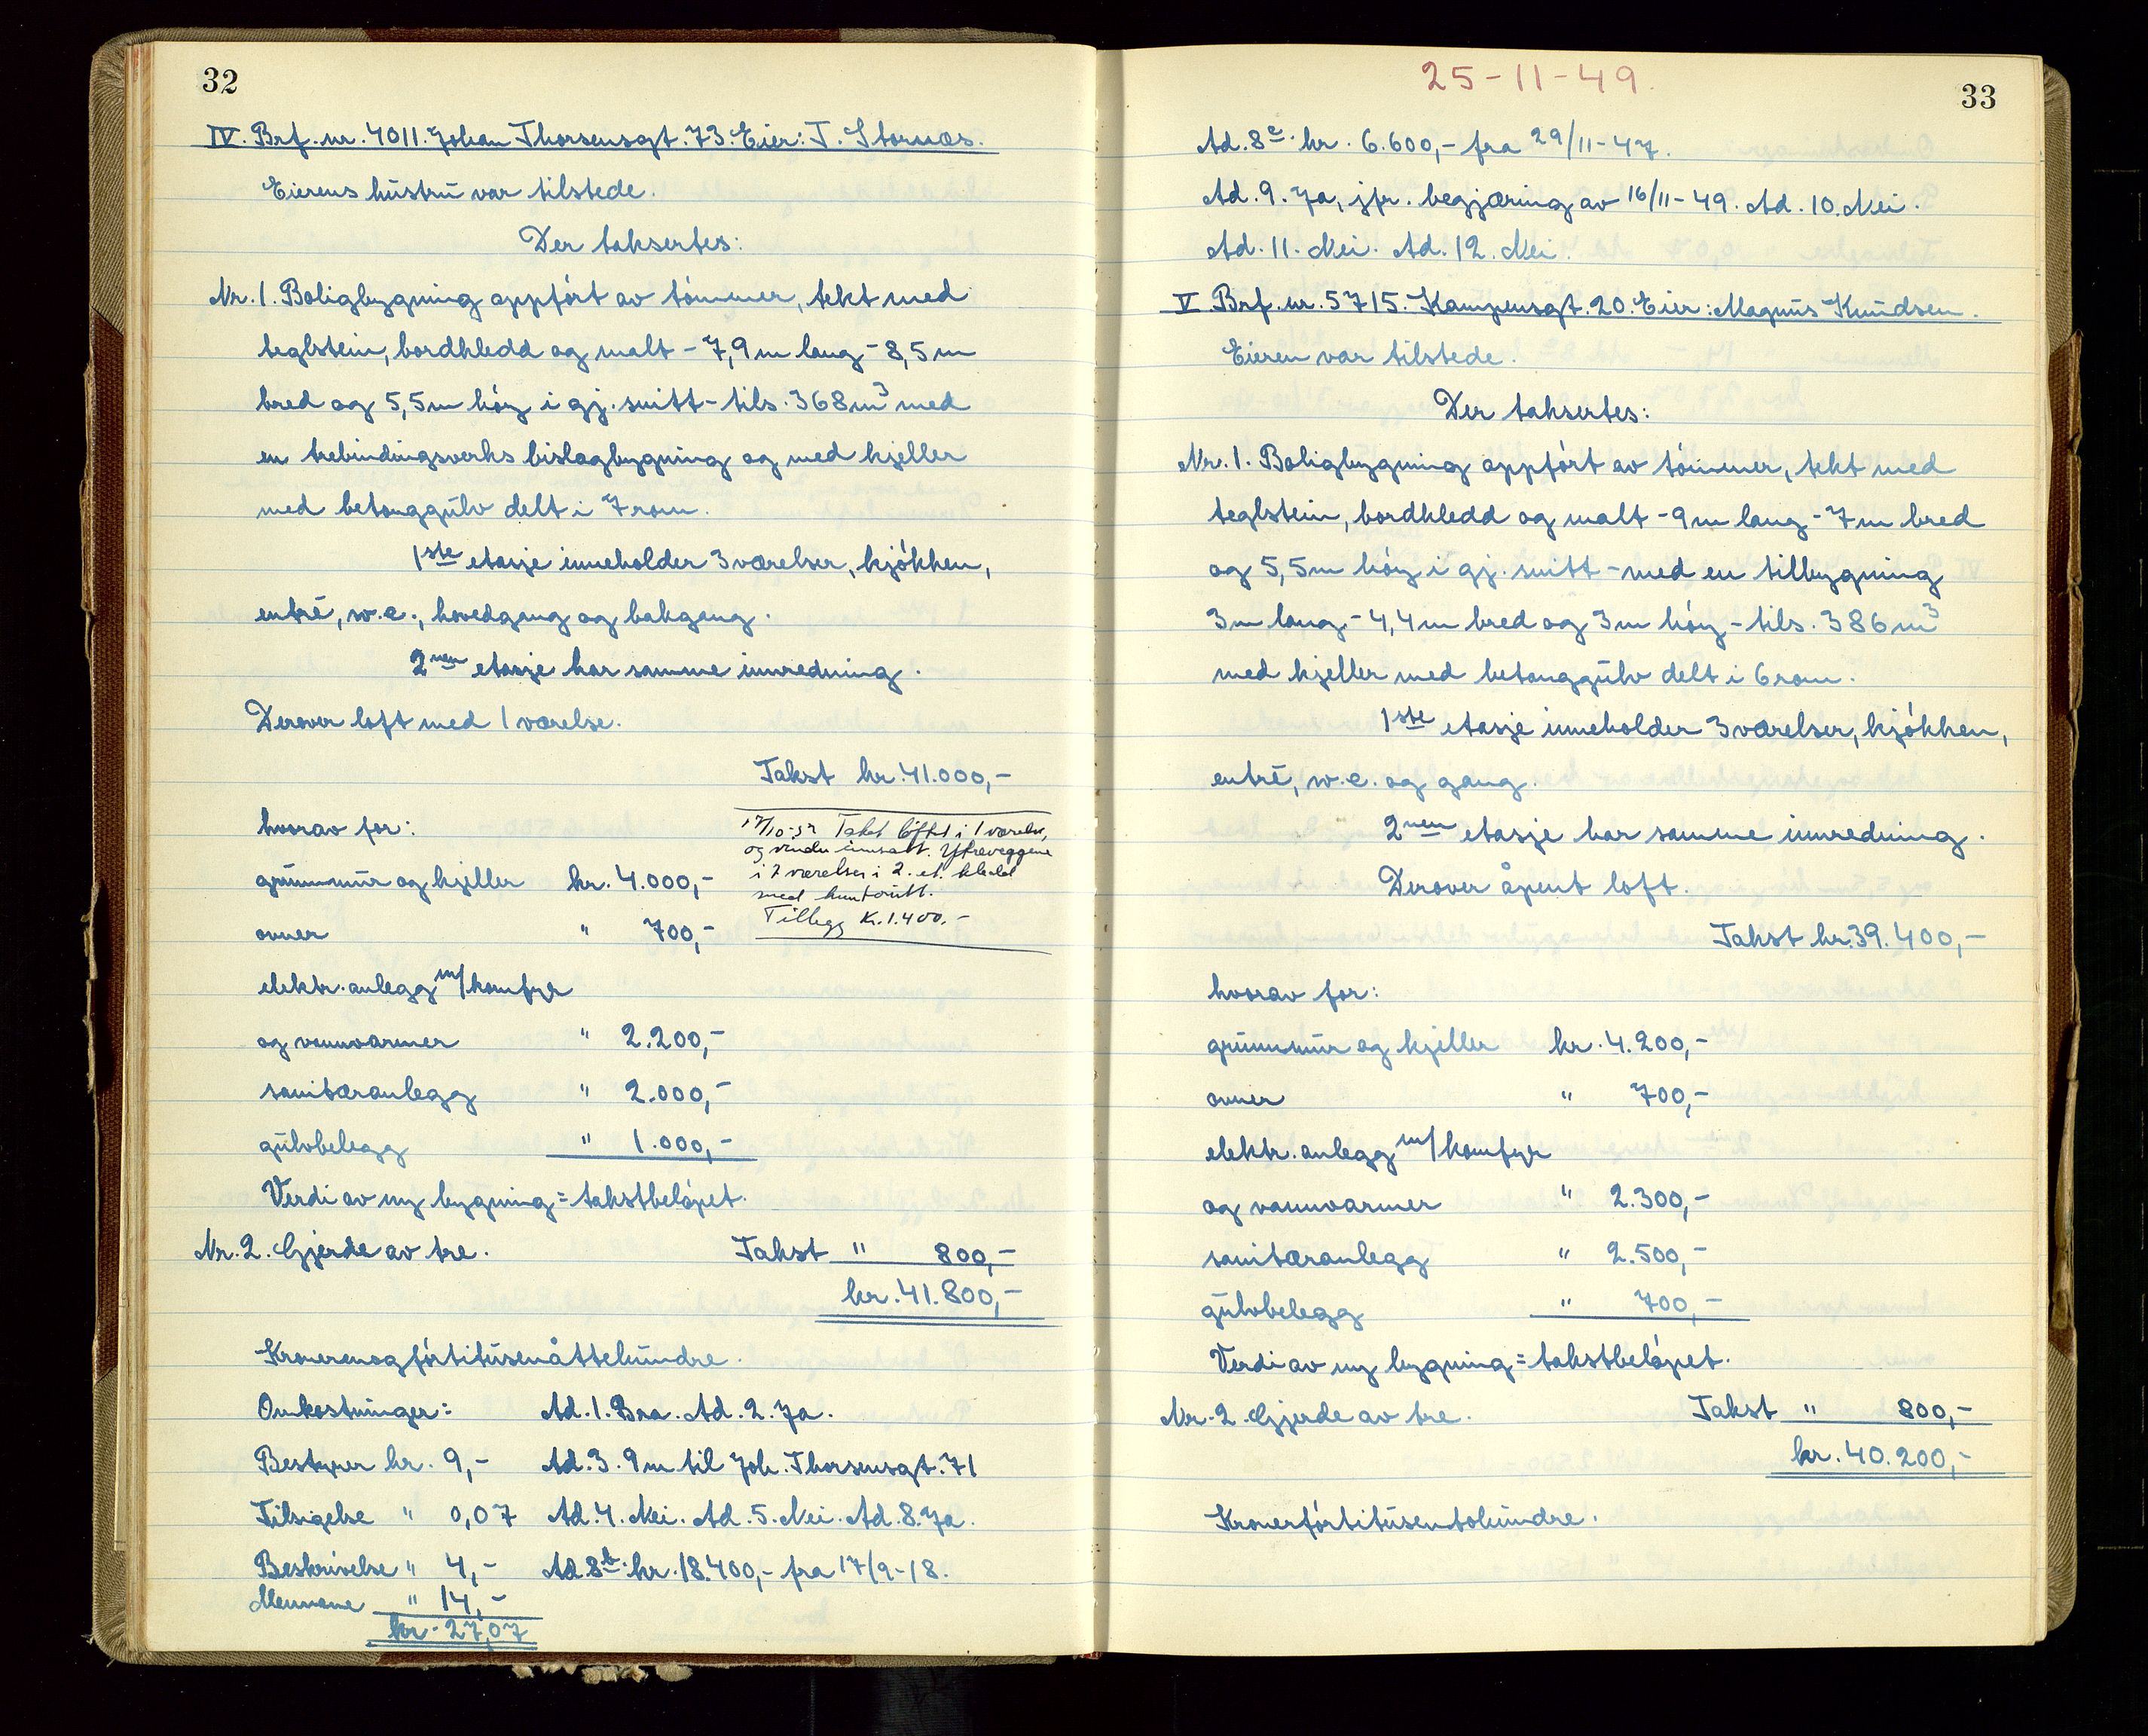 32
IV. Brf. nr. 4011. Johan Thorsensgt. 73. Eier: T. Stornæs.
Eierens hustru var tilstede.
Der taksertes:
Nr. 1. Boligbygning oppført av tømmer, tekt med
teglstein, bordkledd og malt - 7,9 m lang - 8,5 m
bred og 5,5 m høy i gj. snitt - tils. 368 m³ med
en trebindingsverks bislagbygning og med kjeller
med betonggulv delt i 7 rom.
1ste etasje inneholder 3 værelser, kjøkken,
entré, w.c., hovedgang og bakgang.
2nen etasje har samme innredning.
Derover loft med 1 værelse.
Takst kr. 41.000,-
hvorav for:
17/10-52 Taket løftet i 1 værelse,
og vindu innsatt. Ytreveggene
i 2 værelser i 2. et. kledd
med huntonitt.
Tillegg Kr. 1.400.-
grunnmur og kjeller kr. 4.000,-
ovner " 700,-
elektr. anlegg m/komfyr
og vannvarmer " 2.200,-
sanitæranlegg " 2.000,-
gulvbelegg " 1.000,-
Verdi av ny bygning = takstbeløpet.
Nr. 2. Gjerde av tre. Takst " 800,-
kr. 41.800,-
Kronerenogførtitusenåttehundre.
Omkostninger: Ad. 1. Bra. Ad. 2. Ja.
Bestyrer kr. 9,- Ad. 3. 9 m til Joh. Thorsensgt. 71
Tilsigelse " 0,07 Ad. 4. Nei. Ad. 5. Nei. Ad. 8. Ja.
Beskrivelse " 4,- Ad. 8b. kr. 18.400,- fra 17/9-18.
Mennene " 14,-
kr. 27,07
25-11-49.
33
Ad. 8c. kr. 6.600,- fra 29/11-47.
Ad. 9. Ja, jfr. begjæring av 16/11-49. Ad. 10. Nei.
Ad. 11. Nei. Ad. 12. Nei.
V. Brf. nr. 5715. Kampensgt. 20. Eier: Magnus Knudsen.
Eieren var tilstede.
Der taksertes:
Nr. 1. Boligbygning oppført av tømmer, tekt med
teglstein, bordkledd og malt - 9 m lang - 7 m bred
og 5,5 m høy i gj. snitt - med en tilbygning
3 m lang - 4,4 m bred og 3 m høy - tils. 386 m³
med kjeller med betonggulv delt i 6 rom.
1ste etasje inneholder 3 værelser, kjøkken,
entré, w.c. og gang.
2nen etasje har samme innredning.
Derover åpent loft.
Takst kr. 39.400,-
hvorav for:
grunnmur og kjeller kr. 4.200,-
ovner " 700,-
elektr. anlegg m/komfyr
og vannvarmer " 2.300,-
sanitæranlegg " 2.500,-
gulvbelegg " 700,-
Verdi av ny bygning = takstbeløpet.
Nr. 2. Gjerde av tre. Takst " 800,-
kr. 40.200,-
Kronerførtitusentohundre.